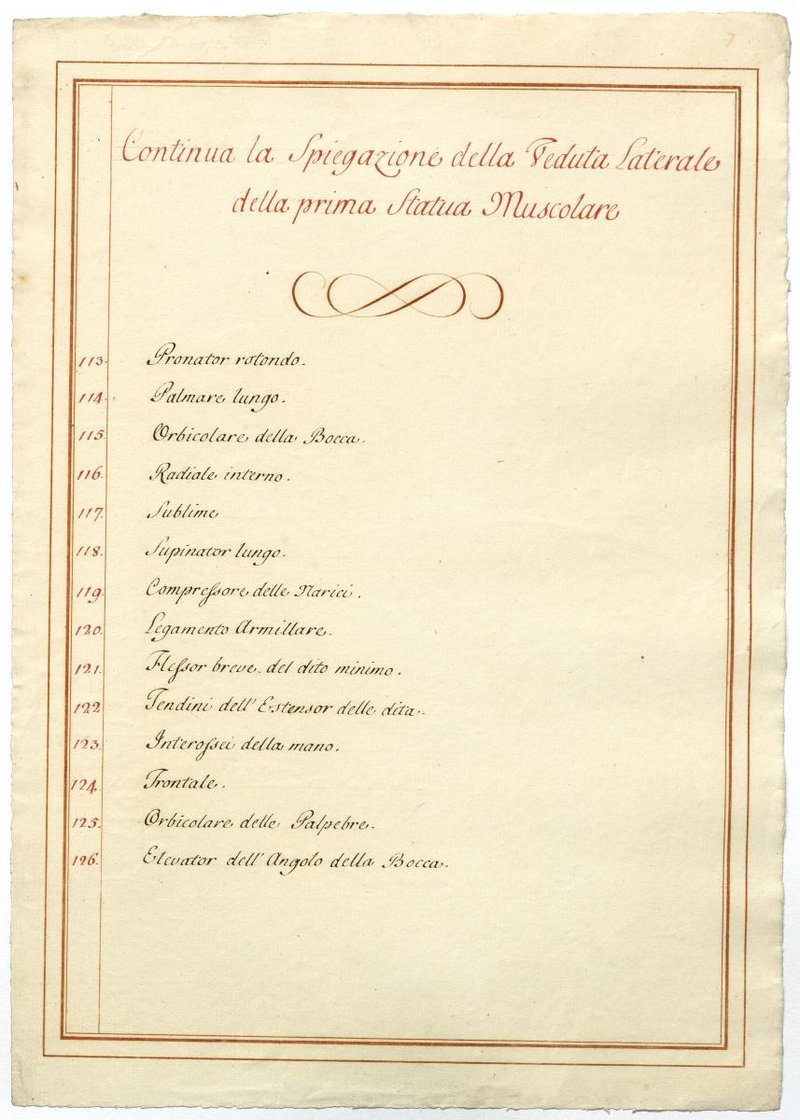 Continua la Spiegazione della Veduta Laterale
della prima Statua Muscolare
113. Pronator rotondo.
114. Palmare lungo.
115. Orbicolare della Bocca.
116. Radiale interno.
117. Sublime
118. Supinator lungo.
119. Compressore delle Narici.
120. Legamento Armillare.
121. Flessor breve del dito minimo.
122. Tendini dell' Estensor delle dita.
123. Interossei della mano.
124. Frontale.
125. Orbicolare delle Palpebre.
126. Elevator dell' Angolo della Bocca.